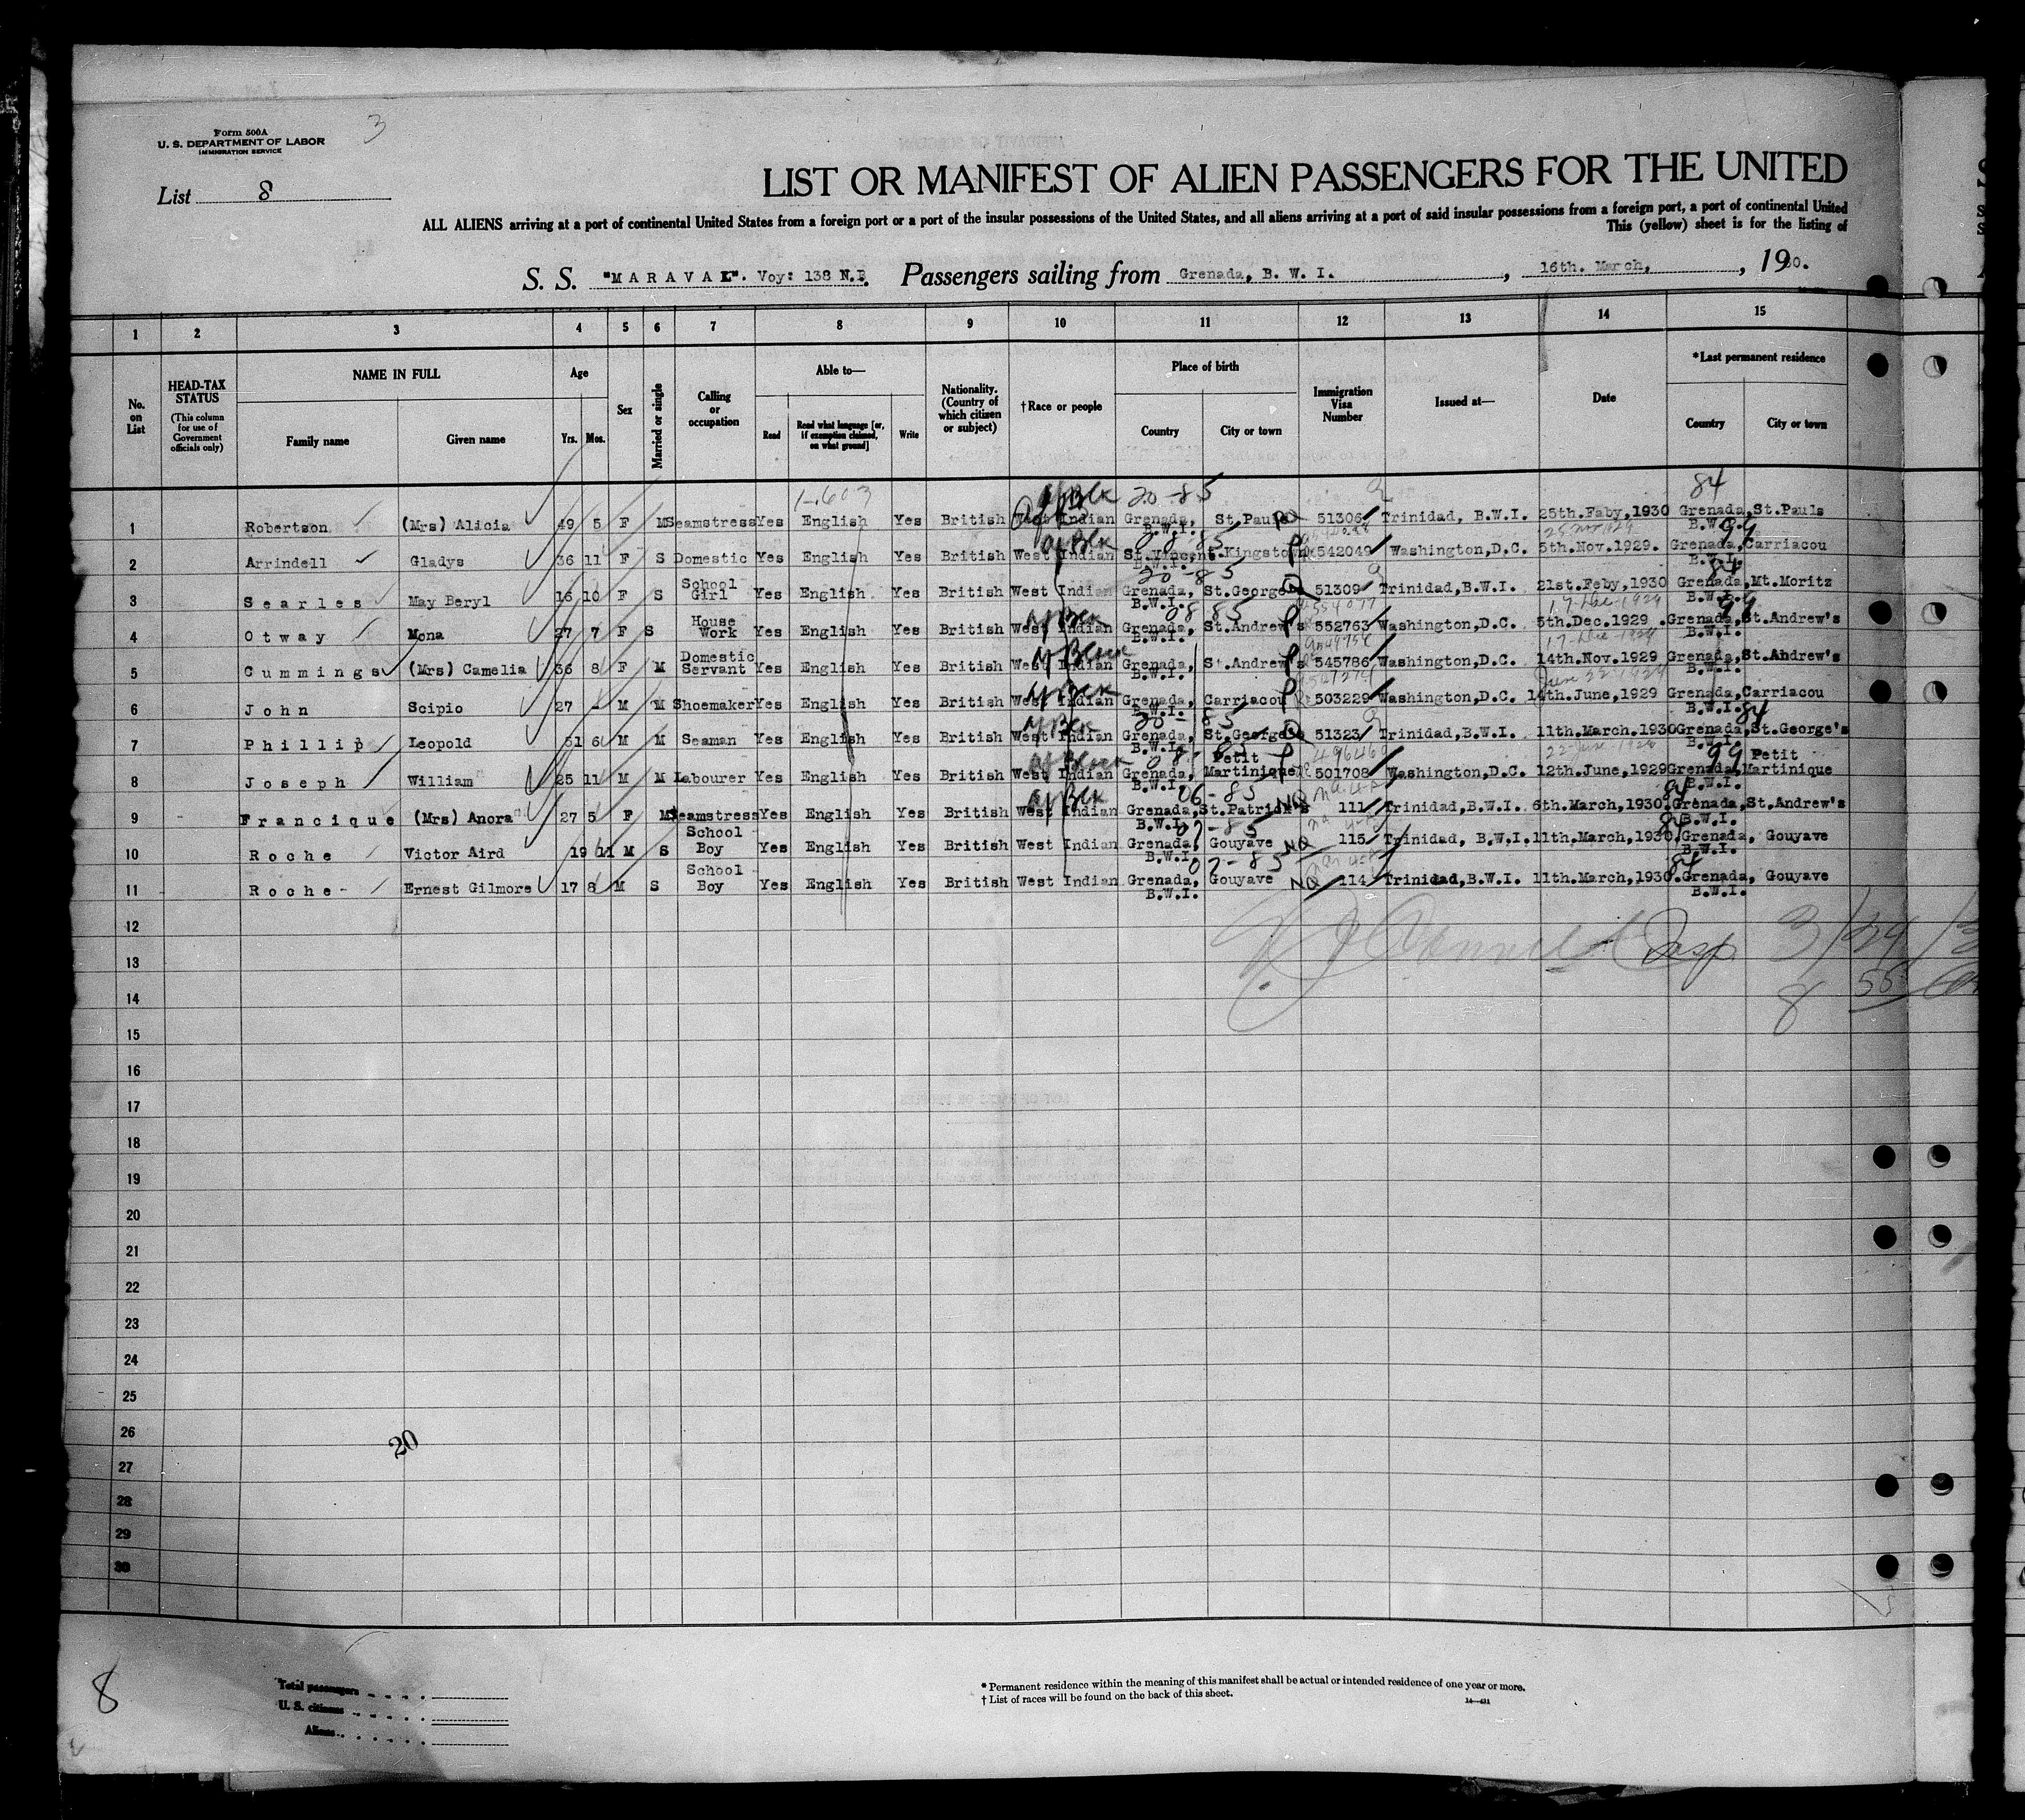 3
Form 500A
U. S. DEPARTMENT OF LABOR
IMMIGRATION SERVICE
List 8
LIST OR MANIFEST OF ALIEN PASSENGERS FOR THE UNITED
ALL ALIENS arriving at a port of continental United States from a foreign port or a port of the insular possessions of the United States, and all aliens arriving at a port of said insular possessions from a foreign port, a port of continental United
This (yellow) sheet is for the listing of
S. S. "MARAVAL". Voy: 138 N.B. Passengers sailing from Grenada, B. W. I., 16th. March, , 1930.
1 2 3 4 5 6 7 8 9 10 11 12 13 14 15
No. on List
HEAD-TAX STATUS (This column for use of Government officials only)
NAME IN FULL Family name Given name
Age Yrs. Mos.
Sex
Married or single
Calling or occupation
Able to— Read Read what language [or, if exemption claimed, on what ground] Write
Nationality. (Country of which citizen or subject)
†Race or people
Place of birth Country City or town
Immigration Visa Number
Issued at—
Date
*Last permanent residence Country City or town
1-603 20-85 84
1 Robertson (Mrs) Alicia 49 5 F M Seamstress Yes English Yes British West Indian Grenada, B.W.I. St.Pauls 51306 Trinidad, B.W.I. 25th.Feby,1930 Grenada, B.W.I. St.Pauls
2 Arrindell Gladys 36 11 F S Domestic Yes English Yes British West Indian St.Vincent, B.W.I. Kingstown 542049 Washington,D.C. 5th.Nov.1929. Grenada, B.W.I. Carriacou
3 Searles May Beryl 16 10 F S School Girl Yes English Yes British West Indian Grenada, B.W.I. St.George 51309 Trinidad,B.W.I. 21st.Feby,1930 Grenada, B.W.I. Mt.Moritz
4 Otway Mona 27 7 F S House Work Yes English Yes British West Indian Grenada, B.W.I. St.Andrew's 552763 Washington,D.C. 5th.Dec.1929. Grenada, B.W.I. St.Andrew's
5 Cummings (Mrs) Camelia 36 8 F M Domestic Servant Yes English Yes British West Indian Grenada, B.W.I. St.Andrew's 545786 Washington,D.C. 14th.Nov.1929 Grenada, B.W.I. St.Andrew's
6 John Scipio 27 - M M Shoemaker Yes English Yes British West Indian Grenada, B.W.I. Carriacou 503229 Washington,D.C. 14th.June,1929 Grenada, B.W.I. Carriacou
7 Phillip Leopold 51 6 M M Seaman Yes English Yes British West Indian Grenada, B.W.I. St.George's 51323 Trinidad,B.W.I. 11th.March.1930 Grenada, B.W.I. St.George's
8 Joseph William 25 11 M M Labourer Yes English Yes British West Indian Grenada, B.W.I. Petit Martinique 501708 Washington,D.C. 12th.June,1929 Grenada, B.W.I. Petit Martinique
9 Francique (Mrs) Anora 27 5 F M Seamstress Yes English Yes British West Indian Grenada, B.W.I. St.Patrick's NQ 111 Trinidad,B.W.I. 6th.March,1930. Grenada, B.W.I. St.Andrew's
10 Roche Victor Aird 19 11 M S School Boy Yes English Yes British West Indian Grenada, B.W.I. Gouyave NQ 115 Trinidad, B.W.I. 11th.March,1930. Grenada, B.W.I. Gouyave
11 Roche Ernest Gilmore 17 8 M S School Boy Yes English Yes British West Indian Grenada, B.W.I. Gouyave NQ 114 Trinidad,B.W.I. 11th.March,1930. Grenada, B.W.I. Gouyave
12
13
14
15
16
17
18
19
20
21
22
23
24
25
26
20
27
28
29
30
8
Total passengers
U. S. citizens
Aliens
* Permanent residence within the meaning of this manifest shall be actual or intended residence of one year or more.
† List of races will be found on the back of this sheet.